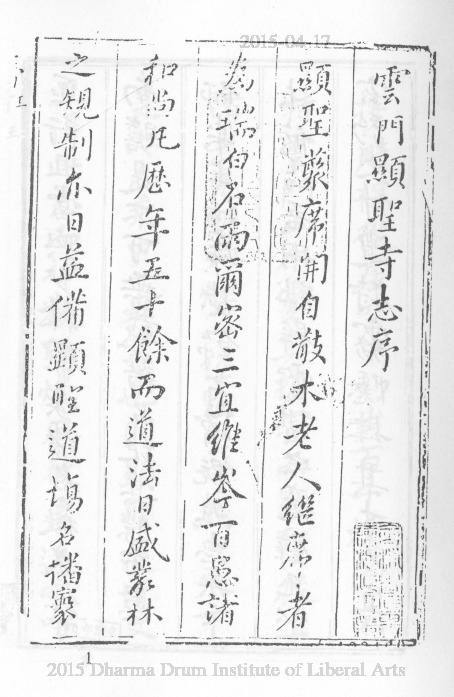 2015-04-17
雲門顯聖寺志序
顯聖藂席開自散木老人繼席〻者
為瑞白石雨爾密三宜維岑百愚諸
和尚凡歷年五十餘而道法日盛藂林
之規制亦日益備顯聖道場名播寰
1
2015 Dharma Drum Institute of Liberal Arts